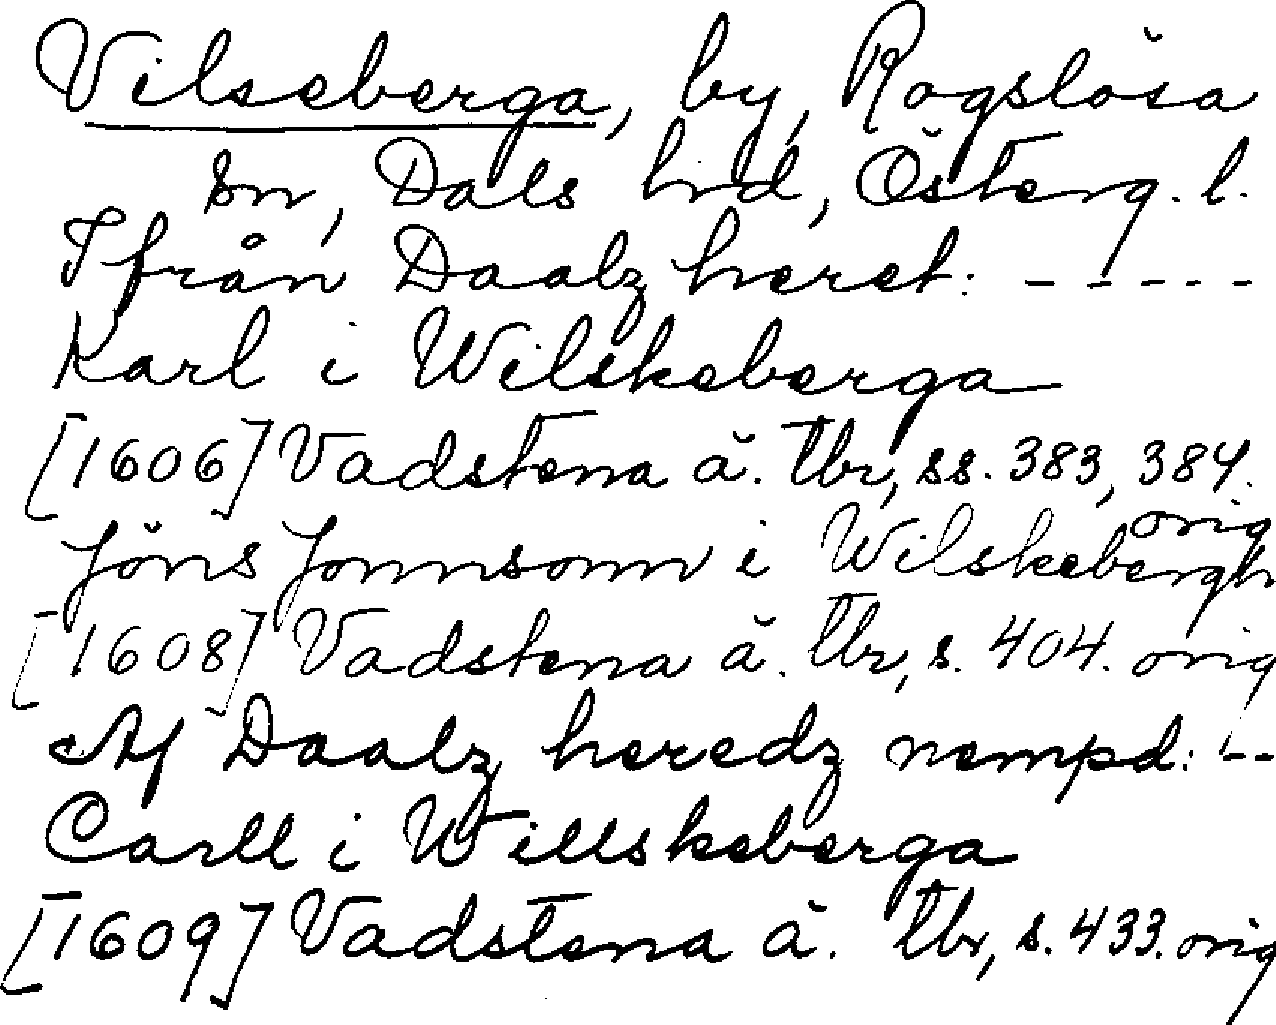 Vilseberga, by, Rogslösa
sn, Dals hrd, Österg. l.
Ifrån Daalz heret: - - - - -
Karl i Wilskeberga
[1606] Vadstena ä. tbr, ss. 383, 384.
orig
Jöns Jonnsonn i Wilskebergh
[1608] Vadstena ä. tbr, s. 404. orig
Af Daalz heredz nempd: - -
Carll i Willskeberga
[1609] Vadstena ä. tbr, s. 433. orig